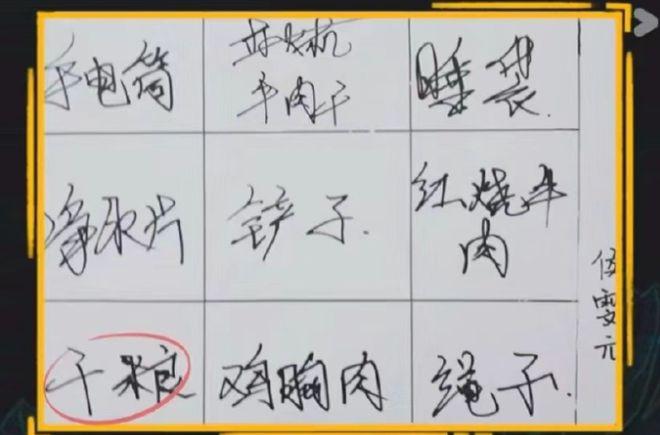 手电筒
打火机
牛肉干
睡袋
净水片
铲子
红烧牛
肉
干粮
鸡胸肉
绳子
伍雯元